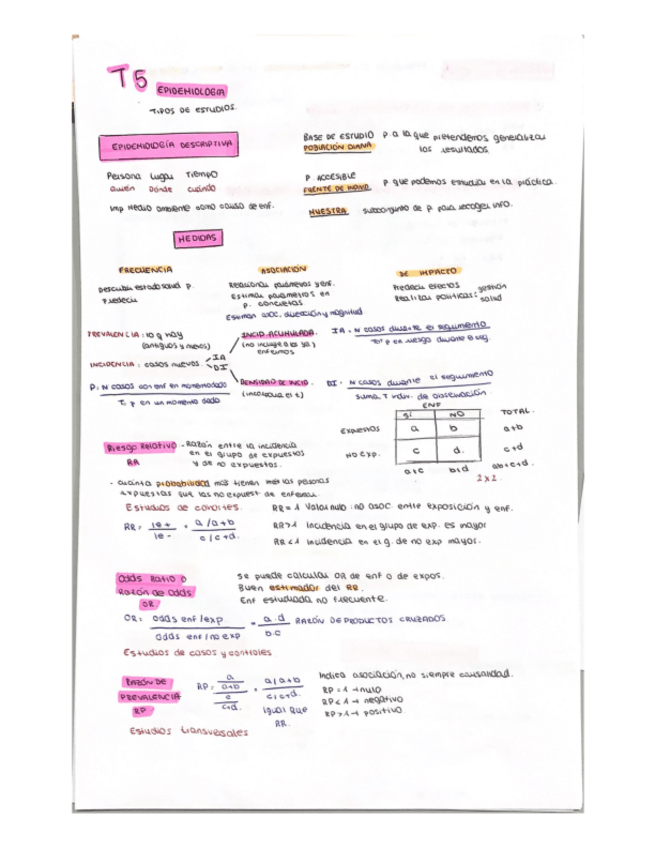 T5 EPIDEMIOLOGÍA
TIPOS DE ESTUDIOS.
EPIDEMIOLOGÍA DESCRIPTIVA
Persona Lugar Tiempo
Quién Dónde cuándo
Imp Medio ambiente como causa de enf.
BASE DE ESTUDIO P. a la que pretendemos generalizar
POBLACIÓN DIANA los resultados.
P. ACCESIBLE
FUENTE DE INDIVID. P que podemos estudiar en la práctica.
MUESTRA. subconjunto de P para recoger info.
MEDIDAS
FRECUENCIA
Describir estado salud P.
Predecir
ASOCIACIÓN
Relacionar parámetros y enf.
Estimar parámetros en
P. concretas
Estiman asoc, dirección y magnitud
DE IMPACTO
Predecir efectos
Realizar políticas: gestión
salud
PREVALENCIA: lo q hay
(antiguos y nuevos)
INCIDENCIA: casos nuevos IA
DI
P: N casos con enf en momento dado
T. P en un momento dado
INCID. ACUMULADA.
(no incluye a los ya
enfermos)
IA = N casos durante el seguimento
Tot P en riesgo durante el seg.
DENSIDAD DE INCID.
(incorpora el t)
DI = N casos durante el seguimiento
suma T indiv. de observación.
ENF
SI NO TOTAL.
EXPUESTOS a b a+b
NO EXP. c d. c+d
a+c b+d ab+c+d.
2x2.
Riesgo Relativo - Razón entre la incidencia
RR en el grupo de expuestos
y de no expuestos.
- Cuánta probabilidad más tienen las personas
expuestas que las no expuest de enfermar.
Estudios de cohortes.
RR = Ie+ / Ie- = a/a+b / c/c+d.
RR = 1 Valor nulo: no asoc. entre exposición y enf.
RR>1 Incidencia en el grupo de exp. es mayor
RR<1 Incidencia en el g. de no exp mayor.
Odds Ratio o
Razón de Odds
OR
Se puede calcular OR de enf o de expos.
Buen estimador del RR.
Enf estudiada no frecuente.
OR: odds enf/exp / odds enf/no exp = a.d / b.c RAZÓN DE PRODUCTOS CRUZADOS
Estudios de casos y controles
RAZÓN DE
PREVALENCIA
RP
RP = a / a+b / c / c+d. = a/a+b / c/c+d.
Igual que
RR.
Indica asociación, no siempre causalidad.
RP = 1 → nulo
RP < 1 → negativo
RP > 1 → positivo.
Estudios transversales